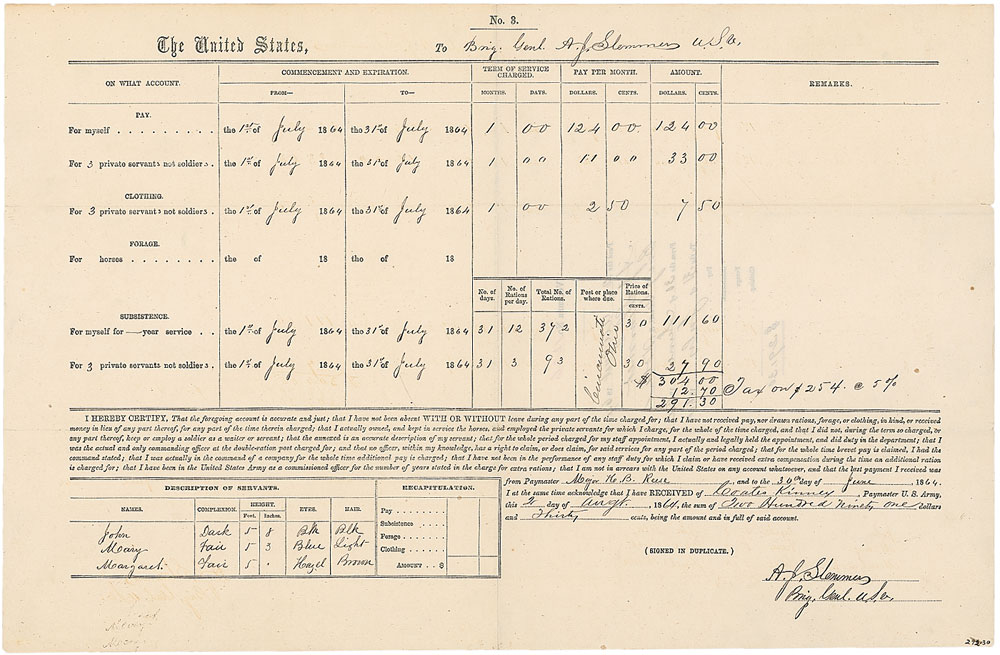 No. 3.
The United States, To Brig. Genl. A. J. Slemmer U.S.V.
ON WHAT ACCOUNT. COMMENCEMENT AND EXPIRATION. TERM OF SERVICE CHARGED. PAY PER MONTH. AMOUNT. REMARKS.
FROM— TO— MONTHS. DAYS. DOLLARS. CENTS. DOLLARS. CENTS.
PAY.
For myself . . . . . . . . . the 1st of July 1864 the 31st of July 1864 1 00 124 00 124 00
For 3 private servants not soldiers . the 1st of July 1864 the 31st of July 1864 1 00 11 00 33 00
CLOTHING.
For 3 private servants not soldiers . the 1st of July 1864 the 31st of July 1864 1 00 2 50 7 50
FORAGE.
For horses . . . . . . . . the of 18 the of 18
No. of days. No. of Rations per day. Total No. of Rations. Post or place where due. Price of Rations. CENTS.
SUBSISTENCE.
For myself for — year service . . the 1st of July 1864 the 31st of July 1864 31 12 372 Cincinnati Ohio 30 111 60
For 3 private servants not soldiers . the 1st of July 1864 the 31st of July 1864 31 3 93 30 27 90
$ 304 00
12.70 Tax on $254. @ 5%
291.30
I HEREBY CERTIFY, That the foregoing account is accurate and just; that I have not been absent WITH OR WITHOUT leave during any part of the time charged for; that I have not received pay, nor drawn rations, forage, or clothing, in kind, or received
money in lieu of any part thereof, for any part of the time therein charged; that I actually owned, and kept in service the horses, and employed the private servants for which I charge, for the whole of the time charged, and that I did not, during the term so charged, or
any part thereof, keep or employ a soldier as a waiter or servant; that the annexed is an accurate description of my servant; that for the whole period charged for my staff appointment, I actually and legally held the appointment, and did duty in the department; that I
was the actual and only commanding officer at the double-ration post charged for; and that no officer, within my knowledge, has a right to claim, or does claim, for said services for any part of the period charged; that for the whole time brevet pay is claimed, I had the
command of a company for the whole time additional pay is charged; that I have not been in the performance of any staff duty for which I claim or have received extra compensation during the time an additional ration
is charged for; that I have been in the United States Army as a commissioned officer for the number of years stated in the charge for extra rations; that I am not in arrears with the United States on any account whatsoever, and that the last payment I received was
from Paymaster Major H. B. Reese, and to the 30th day of June, 1864.
I at the same time acknowledge that I have RECEIVED of Coates Kinney, Paymaster U. S. Army,
this 2 day of Augt., 1864, the sum of Two Hundred Ninety one dollars
and Thirty cents, being the amount and in full of said account.
DESCRIPTION OF SERVANTS.
NAMES. COMPLEXION. HEIGHT. Feet. Inches. EYES. HAIR.
John Dark 5 8 Blk Blk
Mary Fair 5 3 Blue Light
Margaret Fair 5 . Hazel Brown
RECAPITULATION.
Pay . . . . . . .
Subsistence . . . . .
Forage . . . . . .
Clothing . . . . . .
AMOUNT . . $
(SIGNED IN DUPLICATE.)
A. J. Slemmer
Brig. Genl. U.S.V.